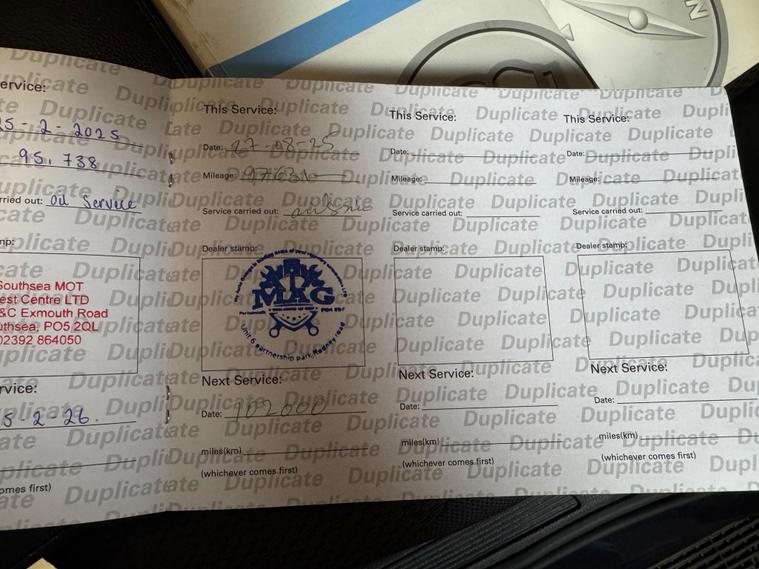 N
ervice:
25-2-2025
95,738
rried out: Oil Service
mp:
Southsea MOT
est Centre LTD
&C Exmouth Road
uthsea, PO5 2QL
02392 864050
rvice:
5-2-26.
omes first)
This Service:
Date: 27-08-25
Mileage:
Service carried out:
Dealer stamp:
MAG
Unit 6 Partnership park, Rodney road
Next Service:
Date: 102000
miles(km)
(whichever comes first)
This Service:
Date:
Mileage:
Service carried out:
Dealer stamp:
Next Service:
Date:
miles(km)
(whichever comes first)
This Service:
Date:
Mileage:
Service carried out:
Dealer stamp:
Next Service:
Date:
miles(km)
(whichever comes first)
Duplicate